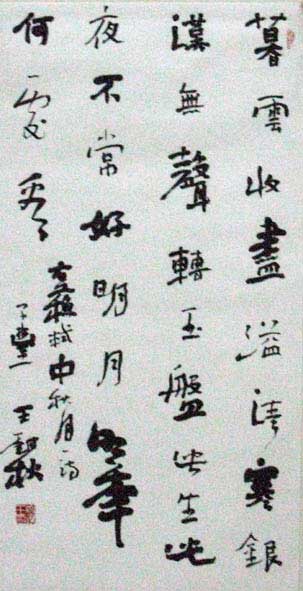 暮雲收盡溢清寒銀
漢無聲轉玉盤此生此
夜不常好明月明年
何處看
右蘇軾中秋月詩
王秋